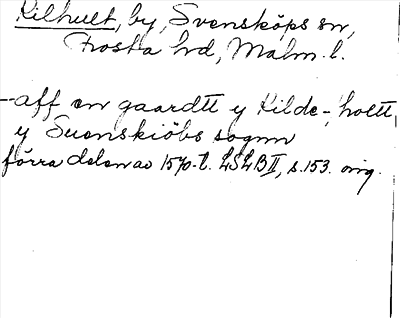 Kilhult, by, Svensköps sn,
Frosta hd, Malm. l.
-- aff en gaardtt y Kilde-, holtt
y Suenskiöbs sognn
förra delen av 1570-t. LSLB II, s. 153. orig.